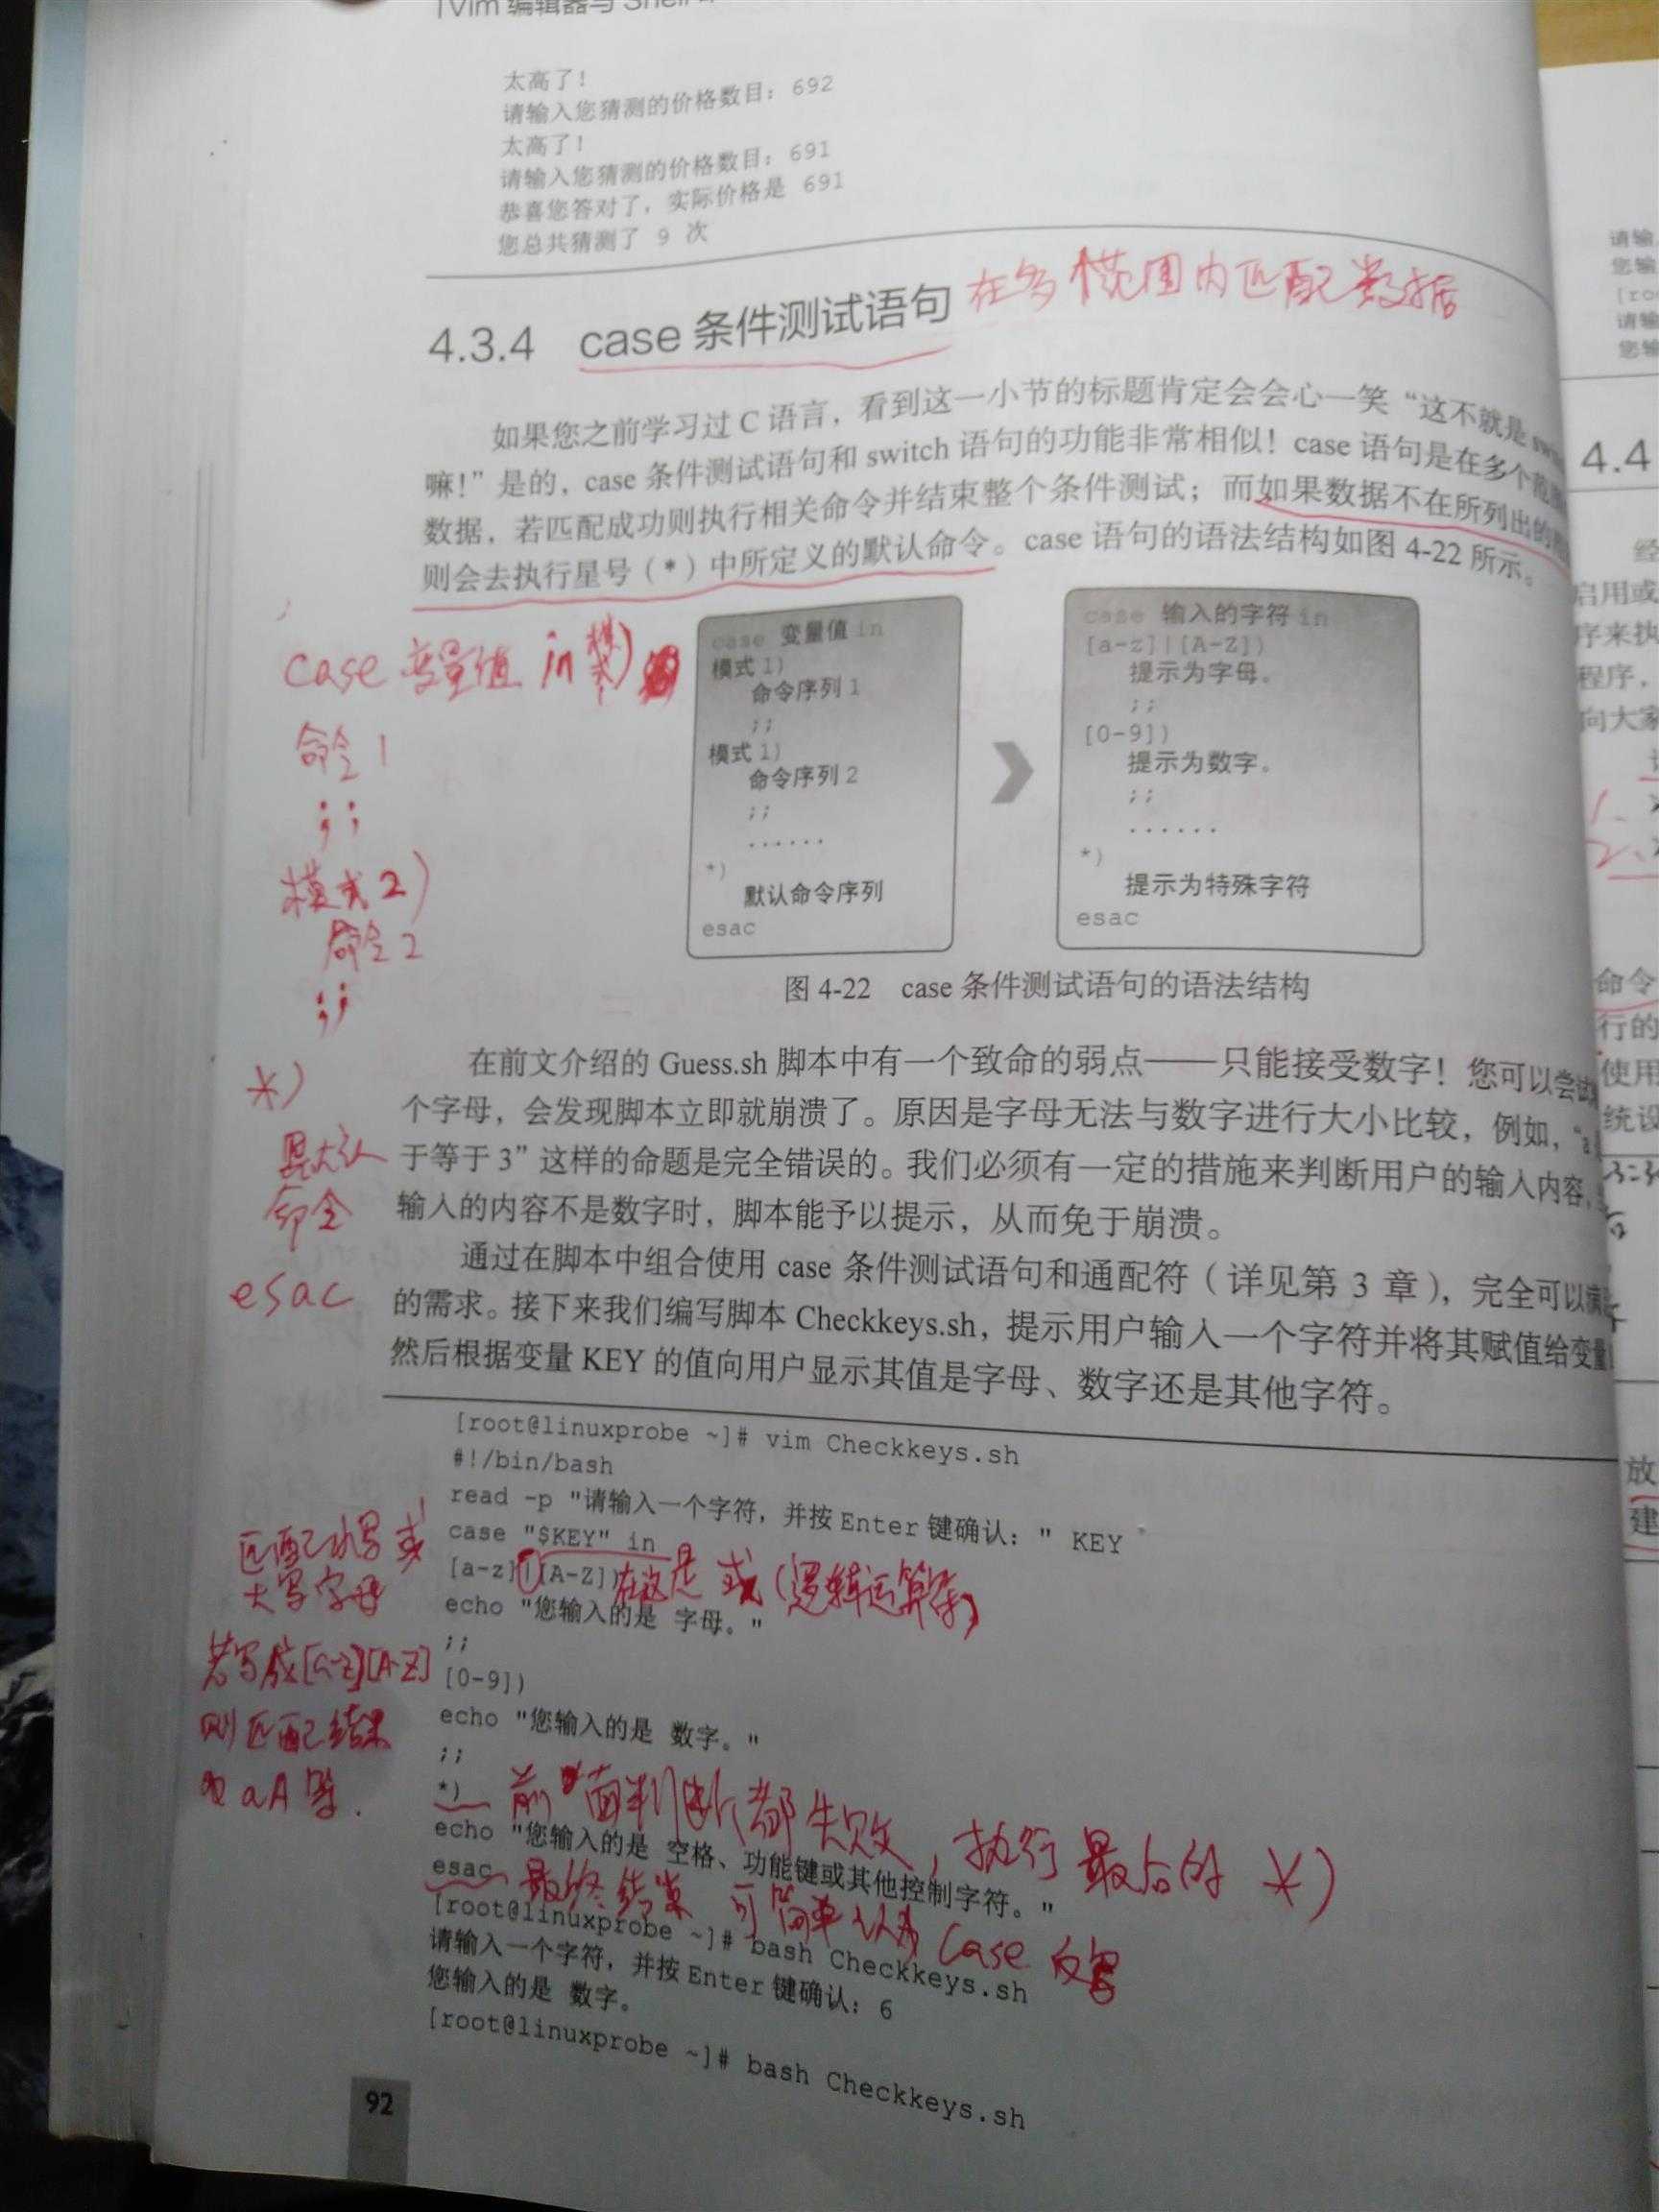 Vim 编辑器与 Shell
太高了！
请输入您猜测的价格数目：692
太高了！
请输入您猜测的价格数目：691
恭喜您答对了，实际价格是 691
您总共猜测了 9 次
4.3.4 case 条件测试语句 在多个范围内匹配数据
如果您之前学习过 C 语言，看到这一小节的标题肯定会会心一笑“这不就是
嘛！”是的，case 条件测试语句和 switch 语句的功能非常相似！case 语句是在多个范
数据，若匹配成功则执行相关命令并结束整个条件测试；而如果数据不在所列出的
则会去执行星号（*）中所定义的默认命令。case 语句的语法结构如图 4-22 所示。
case 变量值 in 模式1)
命令1
;;
模式2)
命令2
;;
*)
默认
命令
esac
case 变量值 in
模式 1)
命令序列 1
;;
模式 1)
命令序列 2
;;
......
*)
默认命令序列
esac
case 输入的字符 in
[a-z]|[A-Z])
提示为字母。
;;
[0-9])
提示为数字。
;;
......
*)
提示为特殊字符
esac
图 4-22 case 条件测试语句的语法结构
在前文介绍的 Guess.sh 脚本中有一个致命的弱点——只能接受数字！您可以尝试
个字母，会发现脚本立即就崩溃了。原因是字母无法与数字进行大小比较，例如，“a
于等于 3”这样的命题是完全错误的。我们必须有一定的措施来判断用户的输入内容，
输入的内容不是数字时，脚本能予以提示，从而免于崩溃。
通过在脚本中组合使用 case 条件测试语句和通配符（详见第 3 章），完全可以满
的需求。接下来我们编写脚本 Checkkeys.sh，提示用户输入一个字符并将其赋值给变量
然后根据变量 KEY 的值向用户显示其值是字母、数字还是其他字符。
[root@linuxprobe ~]# vim Checkkeys.sh
#!/bin/bash
read -p "请输入一个字符，并按 Enter 键确认：" KEY
case "$KEY" in
[a-z]|[A-Z]) 在这是 或（逻辑运算符）
echo "您输入的是 字母。"
;;
[0-9])
echo "您输入的是 数字。"
;;
*) 前面判断都失败，执行最后的 *)
echo "您输入的是 空格、功能键或其他控制字符。"
esac 最终结束 可简单认为 case 反写
[root@linuxprobe ~]# bash Checkkeys.sh
请输入一个字符，并按 Enter 键确认：6
您输入的是 数字。
[root@linuxprobe ~]# bash Checkkeys.sh
匹配小写或
大写字母
若写成[a-z][A-Z]
则匹配结果
aA 等.
92
请输
您输
[ro
请输
您输
4.4
经
启用或
序来执
程序，
向大家
1.
2.
命令
行的
使用
统设
放
建